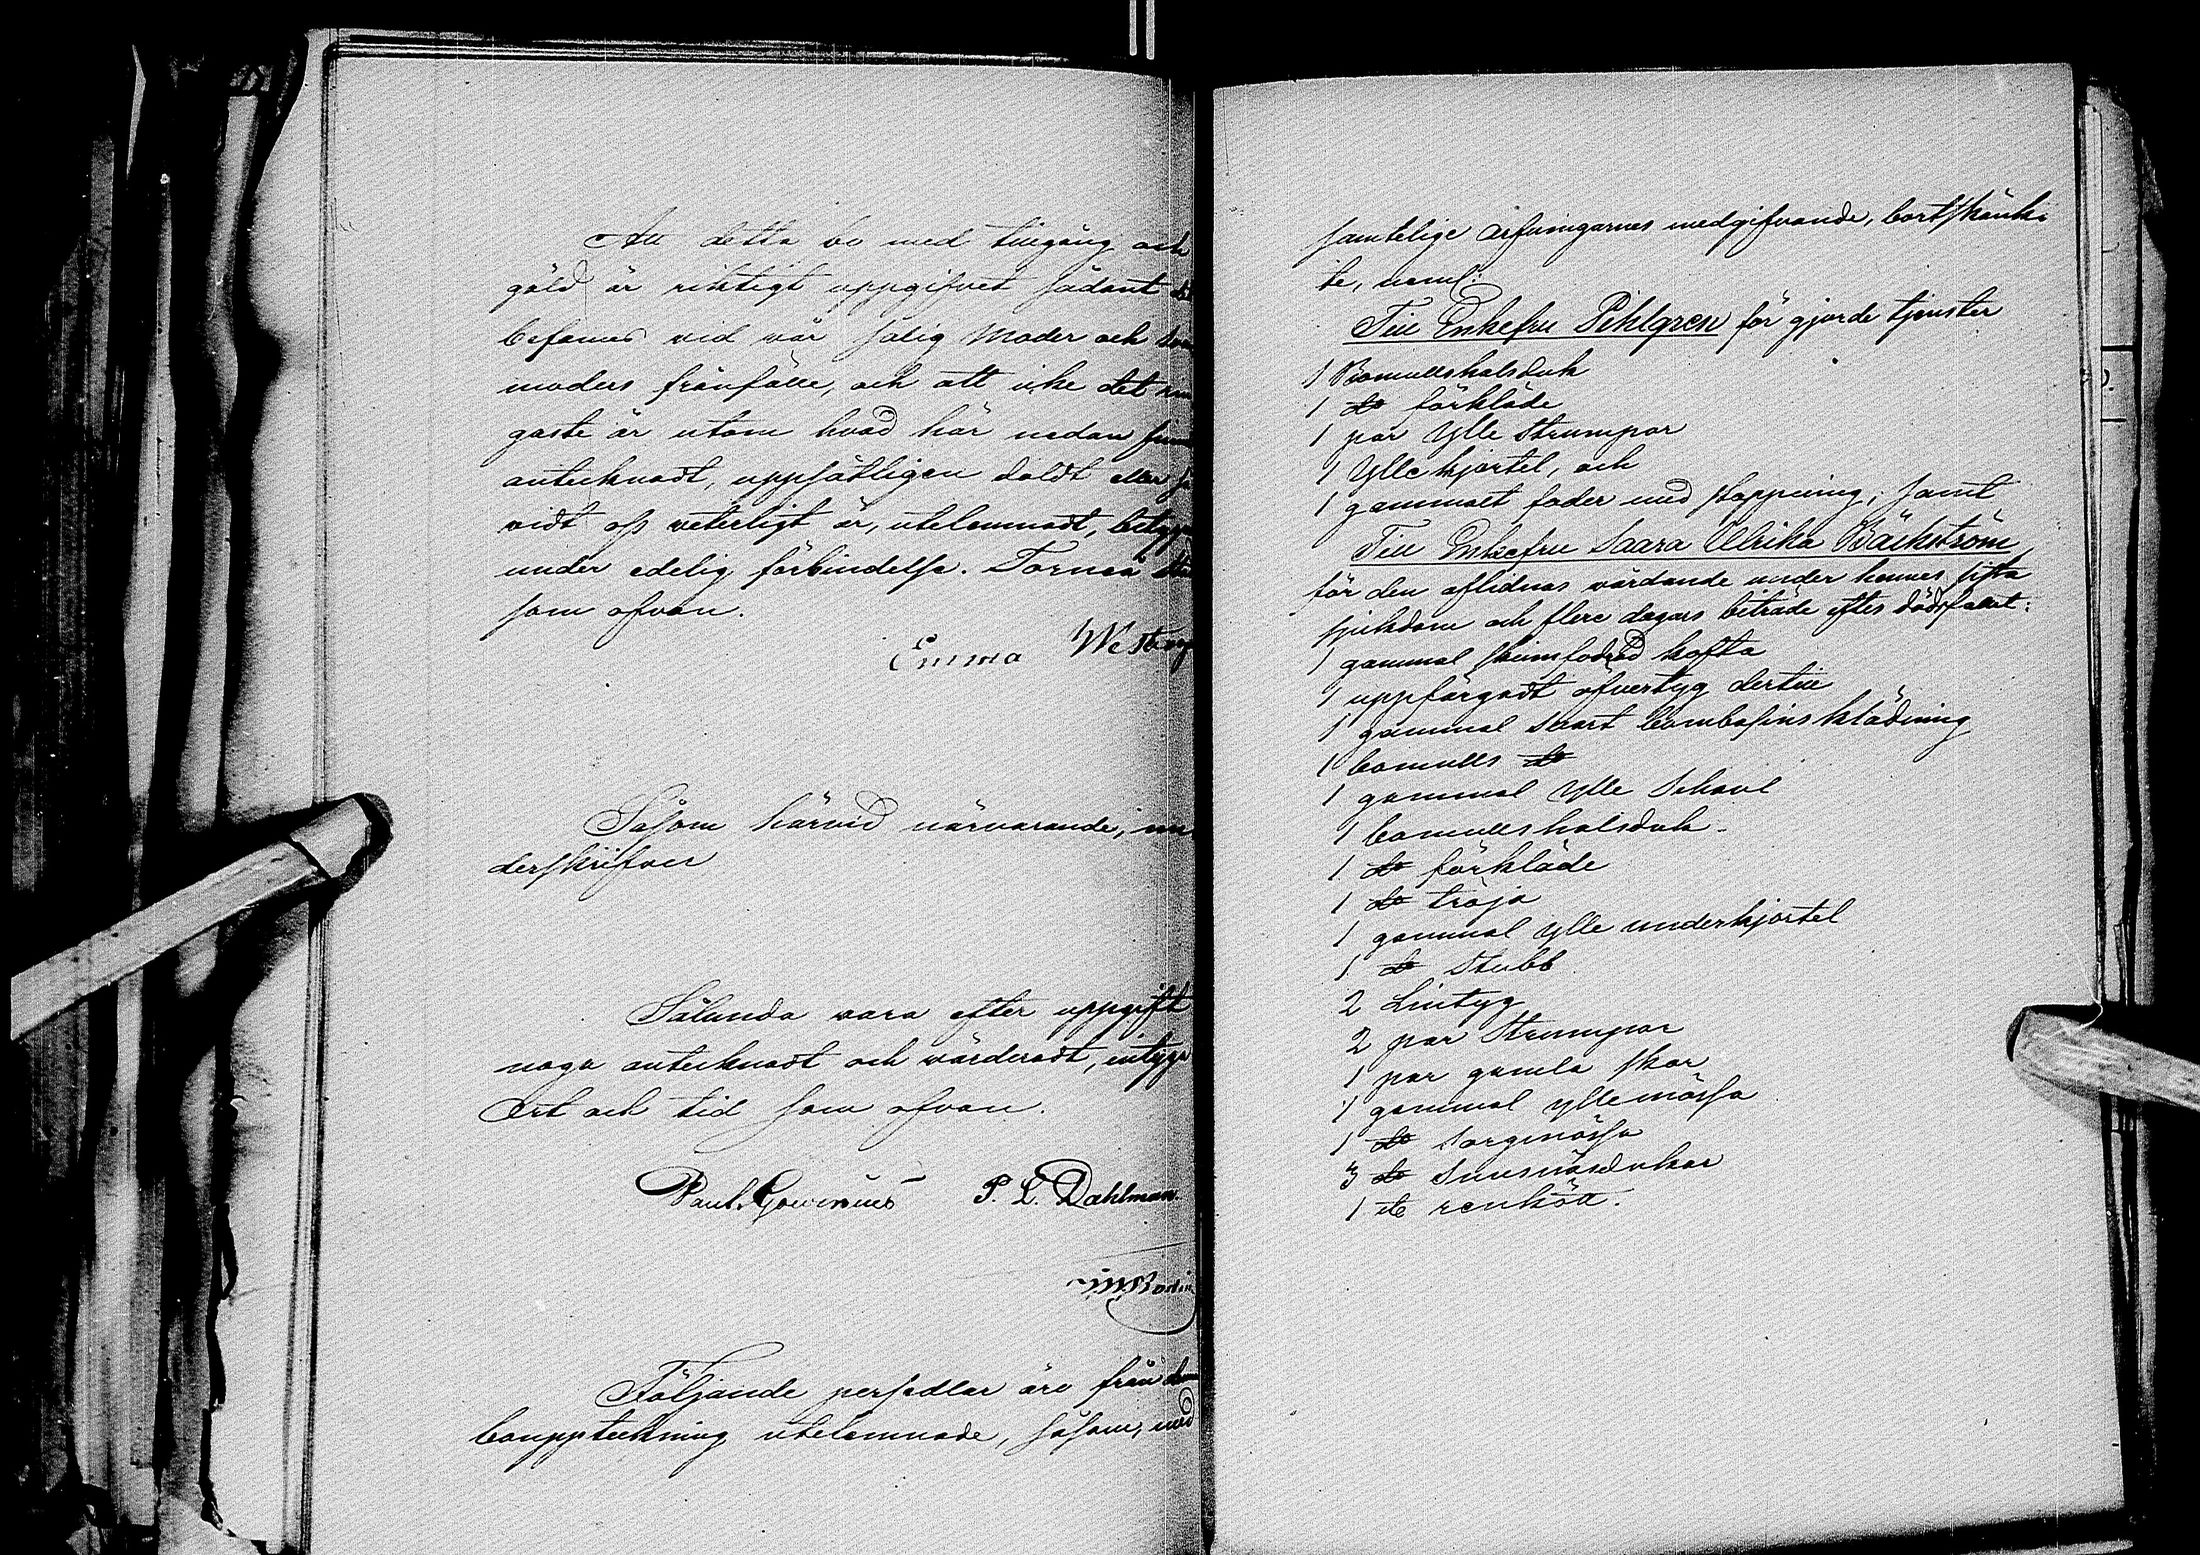 Att detta bo med tillgång och
gäld är riktigt uppgifvet sådant det
befanns vid vår salig Moder och Svär
moders frånfälle, och att icke det rin
gaste är utom hvad här nedan finnes
antecknadt, uppsåtligen doldt eller så
vidt oss veterligt är, utelemnadt, betyga
under edelig förbindelse. Torneå
som ofvan.
Emma Westberg
Såsom härvid närvarande, un
derskrifver
Sålunda vara efter uppgift
noga antecknadt och värderadt, intyga
Ort och tid som ofvan.
Paul P. L. Dahlman
Bodin
Följande persedlar äro från denna
bouppteckning utelemnade, såsom, med
samtelige arfvingarnes medgifvande, bortskänk
te, neml:
Till Enkefru Pihlgren för gjorde tjenster
1 Bomullshalsduk
1 do förkläde
1 par Ylle Strumpor
1 Yllekjortel, och
1 gammalt foder med stoppning; samt
Till Enkefru Saara Ulrika Bäckström
för den aflidnas vårdande under hennes sista
sjukdom och flere dagars biträde efter dödsfallet:
1 gammal skinnfodrad kofta
1 uppfärgadt öfvertyg dertill
1 gammal svart bombasinsklädning
1 bomulls do
1 gammal Ylle Schavl
1 bomullshalsduk
1 do förkläde
1 do tröja
1 gammal ylle underkjortel
1 do Stubb
2 Lintyg
2 par Strumpor
1 par gamla skor
1 gammal yllemössa
1 do sorgmössa
3 do snusnäsdukar
1 renköt.